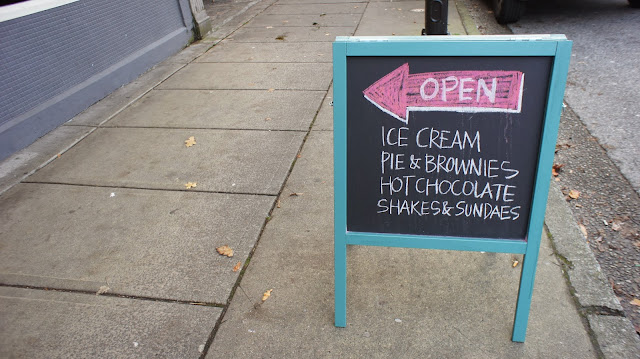 OPEN
ICE CREAM
PIE & BROWNIES
HOT CHOCOLATE
SHAKES & SUNDAES